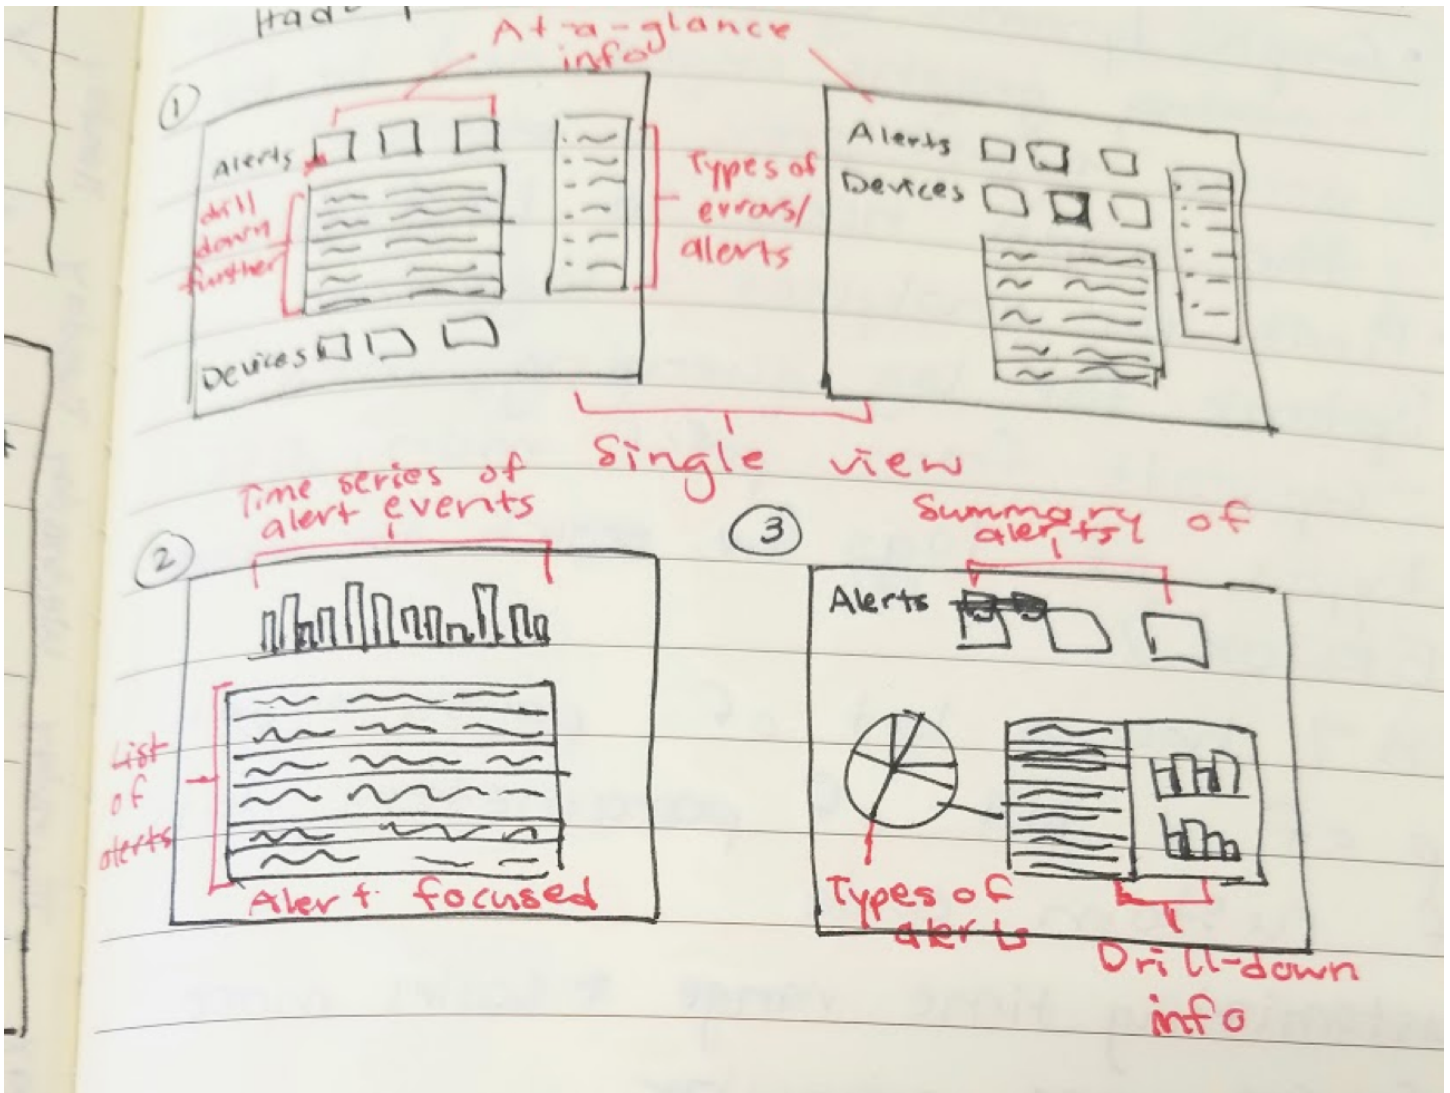 At-a-glance
info
1
Alerts
drill
down
further
Devices
Types of
errors/
alerts
Alerts
Devices
Single view
Time series of
alert events
2
List
of
alerts
Alert focused
3
Summary of
alerts
Alerts
Types of
alerts
Drill-down
info